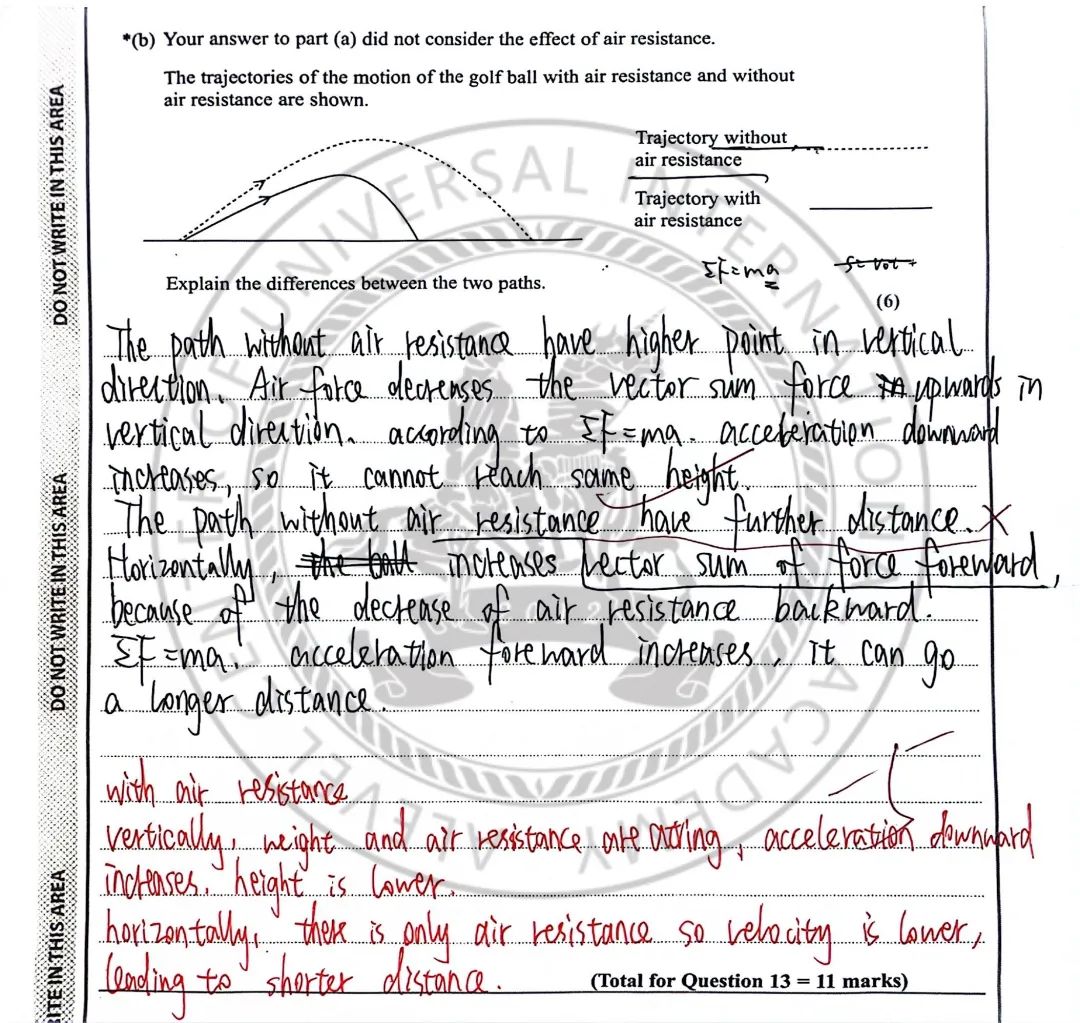 *(b) Your answer to part (a) did not consider the effect of air resistance.
The trajectories of the motion of the golf ball with air resistance and without
air resistance are shown.
Trajectory without
air resistance
Trajectory with
air resistance
Explain the differences between the two paths.
ΣF=ma
(6)
The path without air resistance have higher point in vertical
direction. Air force decreases the vector sum force upwards in
vertical direction. according to ΣF=ma. acceberation downward
increases, so it cannot reach same height.
The path without air resistance have further distance. X
Horizontally, the ball increases vector sum of force foreward,
because of the decrease of air resistance backward.
ΣF=ma. acceleration foreward increases, it can go
a longer distance.
with air resistance
vertically, weight and air resistance are acting, acceleration downward
increases. height is lower.
horizontally, there is only air resistance so velocity is lower,
leading to shorter distance.
(Total for Question 13 = 11 marks)
DO NOT WRITE IN THIS AREA
DO NOT WRITE IN THIS AREA
ITE IN THIS AREA
UNIVERSAL INTERNATIONAL
ALEVEL ACADEMY